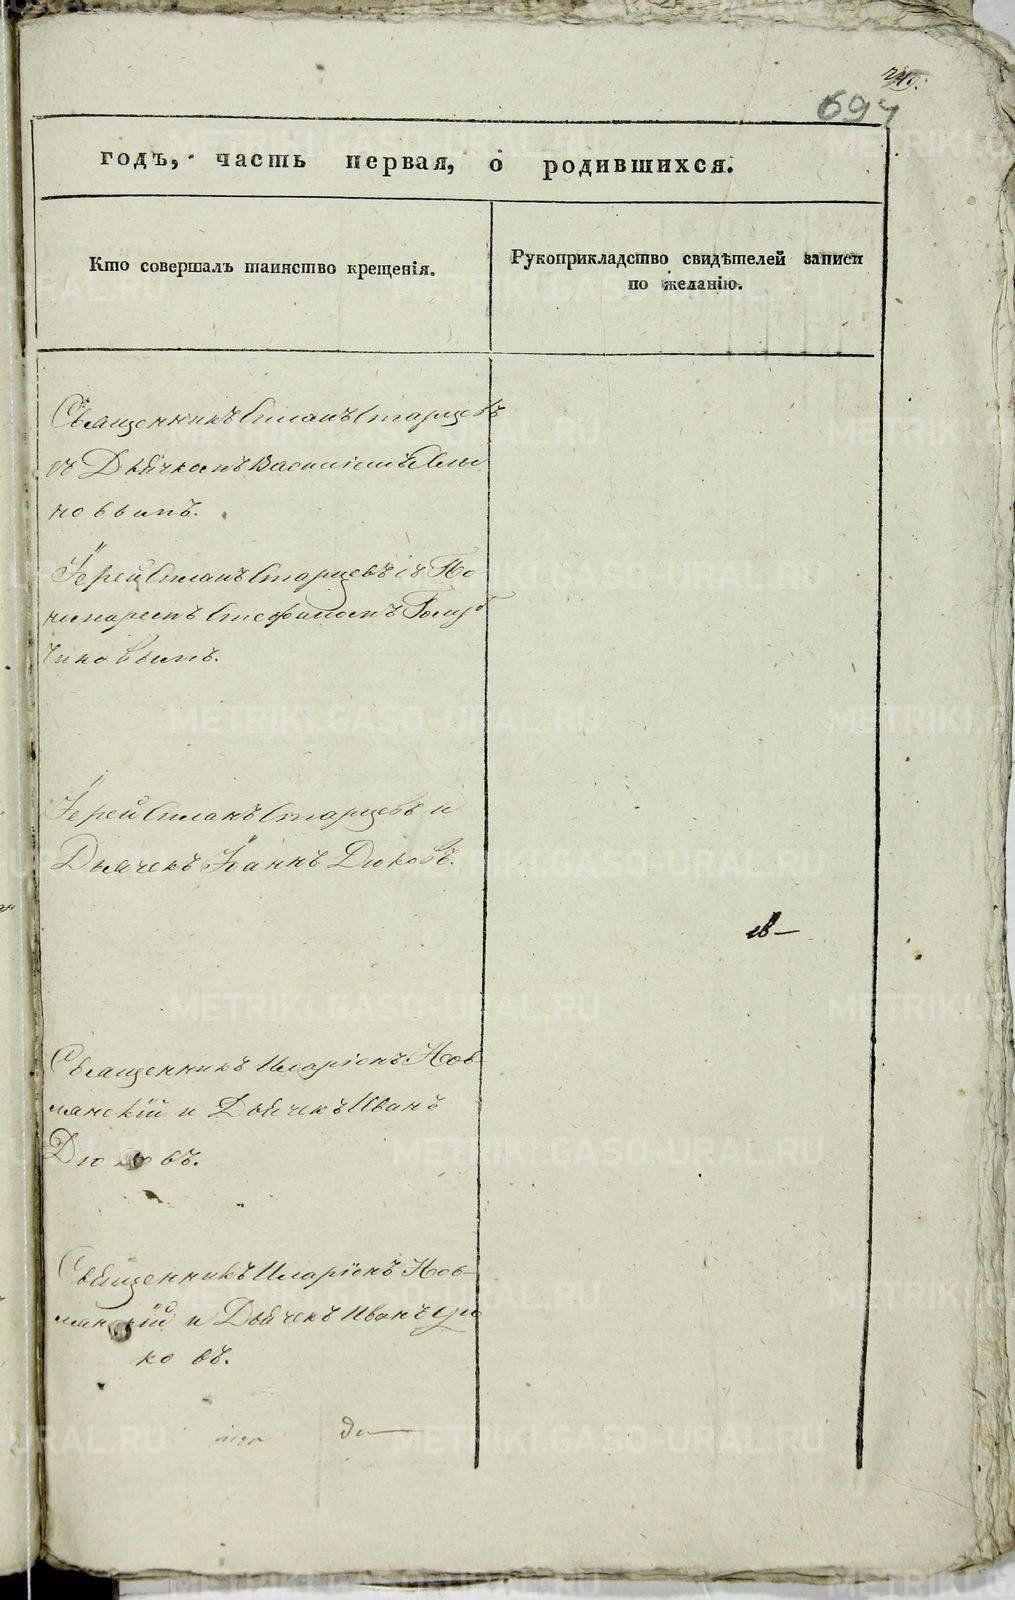 697
годъ, часть первая, о родившихся.
Кто совершалъ таинство крещенія.
Рукоприкладство свидѣтелей записи
по желанію.
Священникъ Стефанъ Старцевъ
съ Дьячкомъ Василіемъ
новымъ.
Іерей Старцевъ съ По
номаремъ Стефаномъ Голуб
чиковымъ.
Іерей Старцевъ и
Дьячекъ Іоаннъ Дюковъ.
Священникъ Иларіонъ Нов
лянскій и Дьячекъ Иванъ
Дюковъ.
Священникъ Иларіонъ Нов-
лянскій и Дьячекъ Иванъ Дю
ковъ.
METRIKI.GASO-URAL.RU